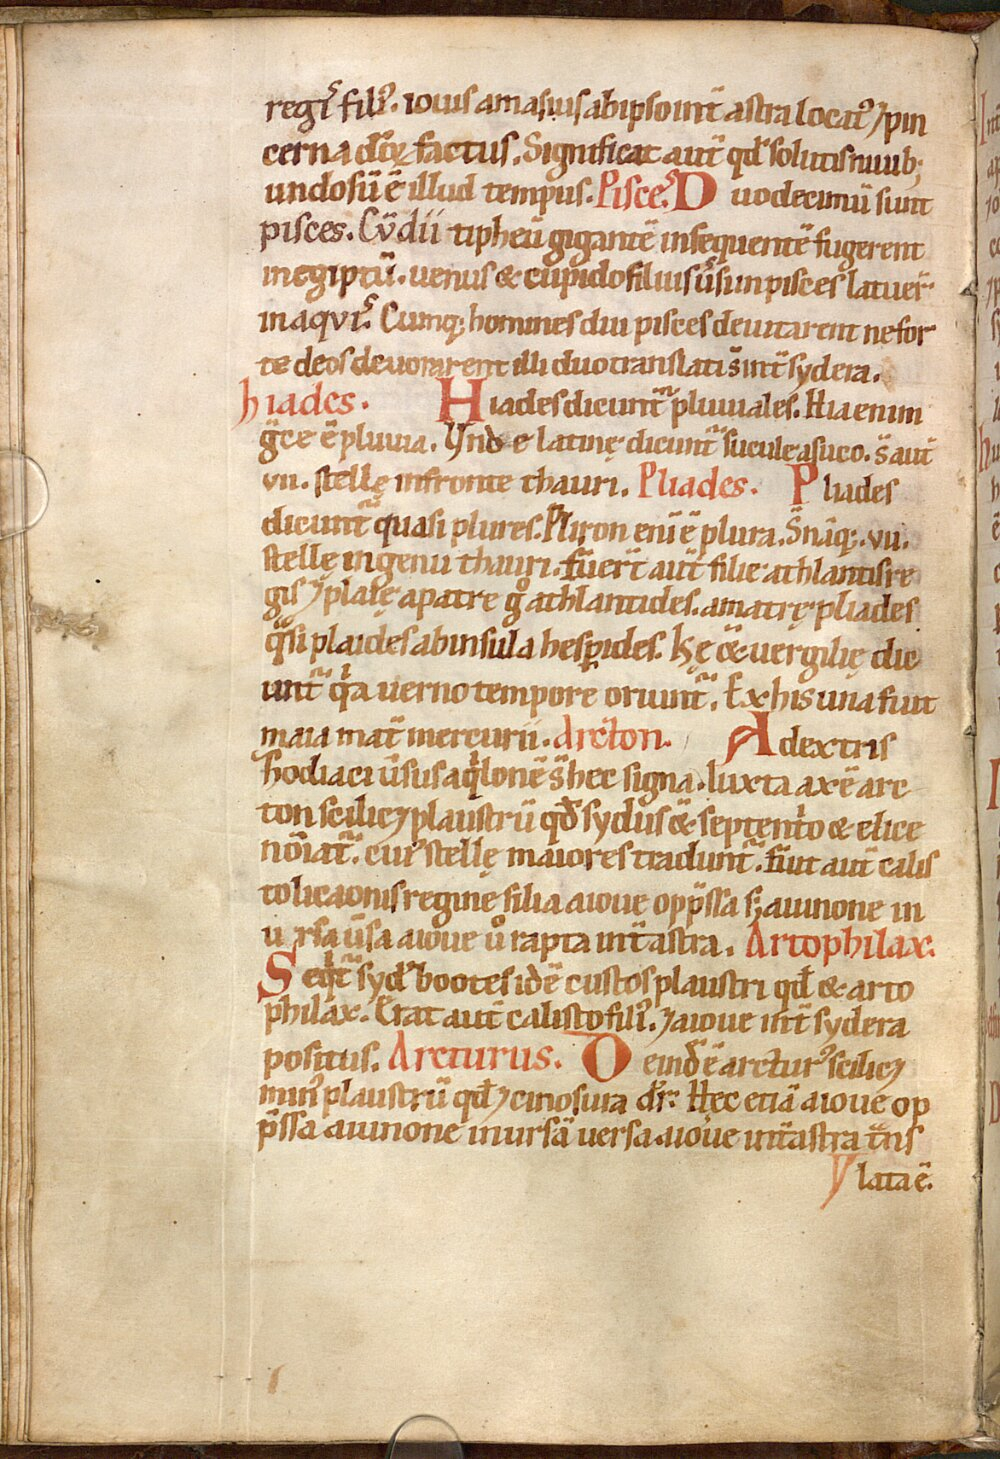 regiˢ filiꝰ. iouis amasius ab ipso int̄ astra locatꝰ ⁊ pin
cerna deoꝝ factus. Significat aut̄ qd̄ solutis nuub;
undosū ē illud tempus. Pisceˢ. Duodecimū sunt
pisces. Cū dii tipheū gigantē insequentē fugerent
in egiptū. uenus & cupido filius ūsi in pisces latuer̄
in aqviˢ. Cumq; homines diu pisces deuitarent ne for
te deos deuorarent illi duo translati s̄ int̄ sydera.
hiades. Hiades dicunt᷑ pluuiales. Hia enim
ḡce ē pluuia. Vnde latinę dicunt᷑ sucule a suco. s̄ aut̄
vii. stellę in fronte thauri. Pliades. Pliades
dicunt᷑ quasi plures. Pliron eni ē plura. S̄ nāq;. vii.
stellę in genu thauri. fuer̄t aut̄ filie athlantis re
gis ⁊ plaie a patre g̊ athlantides. a matrę pliades
q̄si plaides ab insula hesꝑides. hę & uergilię dic
unt᷑ qͥa uerno tempore oriunt᷑. Ex his una fuit
maia mat̄ mercurii. Arcton. A dextris
hodiaci ūsus aqͥlonē s̄ hec signa. Iuxta axē arc
ton scilic⁊ plaustrū qd̄ sydus & septentͥo & elice
nōiat᷑. cuiꝰ stellę maiores tradunt᷑. fuit aut̄ calis
to licaonis regine filia a ioue opp̄ssa s; a iunone in
ursa ūsa a ioue ů rapta int̄ astra. Artophilax.
Seqͥt᷑ sydꝰ bootes idē custos plaustri qd̄ & arto
philax. Erat aut̄ calisto filiꝰ. ⁊ a ioue int̄ sydera
positus. Arcturus. Deind ē arcturꝰ scilic⁊
minꝰ plaustrū qd̄ ⁊ cinosura dr̄. Hęc etiā a ioue op
p̄ssa a iunone in ursā uersa. a ioue int̄ astra t̄ns
lata ē.